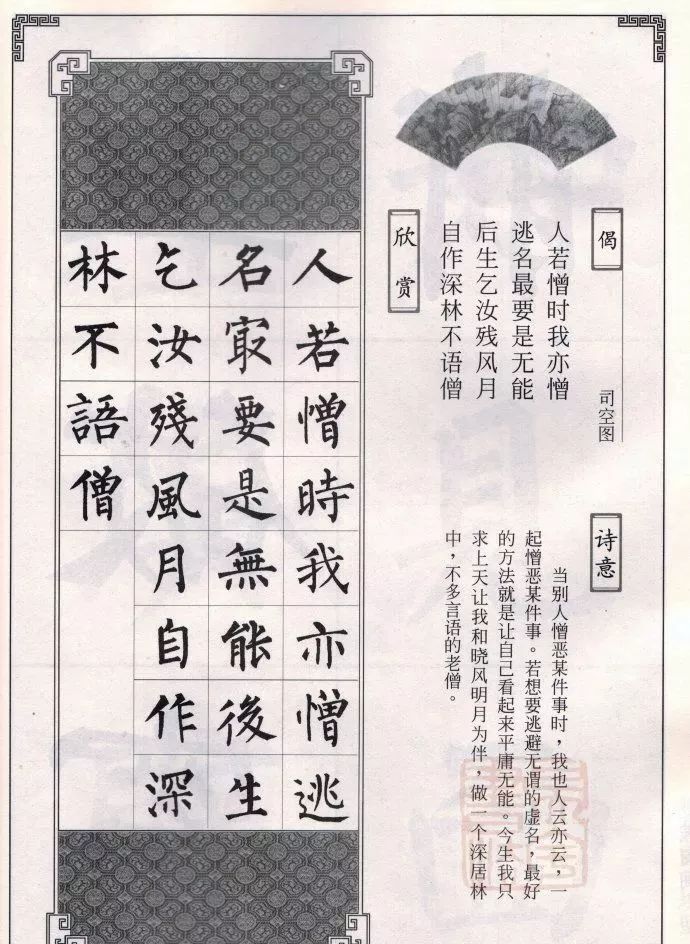 偈
司空图
人若憎时我亦憎
逃名最要是无能
后生乞汝残风月
自作深林不语僧
诗意
当别人憎恶某件事时，我也人云亦云，一
起憎恶某件事。若想要逃避无谓的虚名，最好
的方法就是让自己看起来平庸无能。今生我只
求上天让我和晓风明月为伴，做一个深居林
中，不多言语的老僧。
欣赏
人若憎時我亦憎逃
名冣要是無能後生
乞汝殘風月自作深
林不語僧